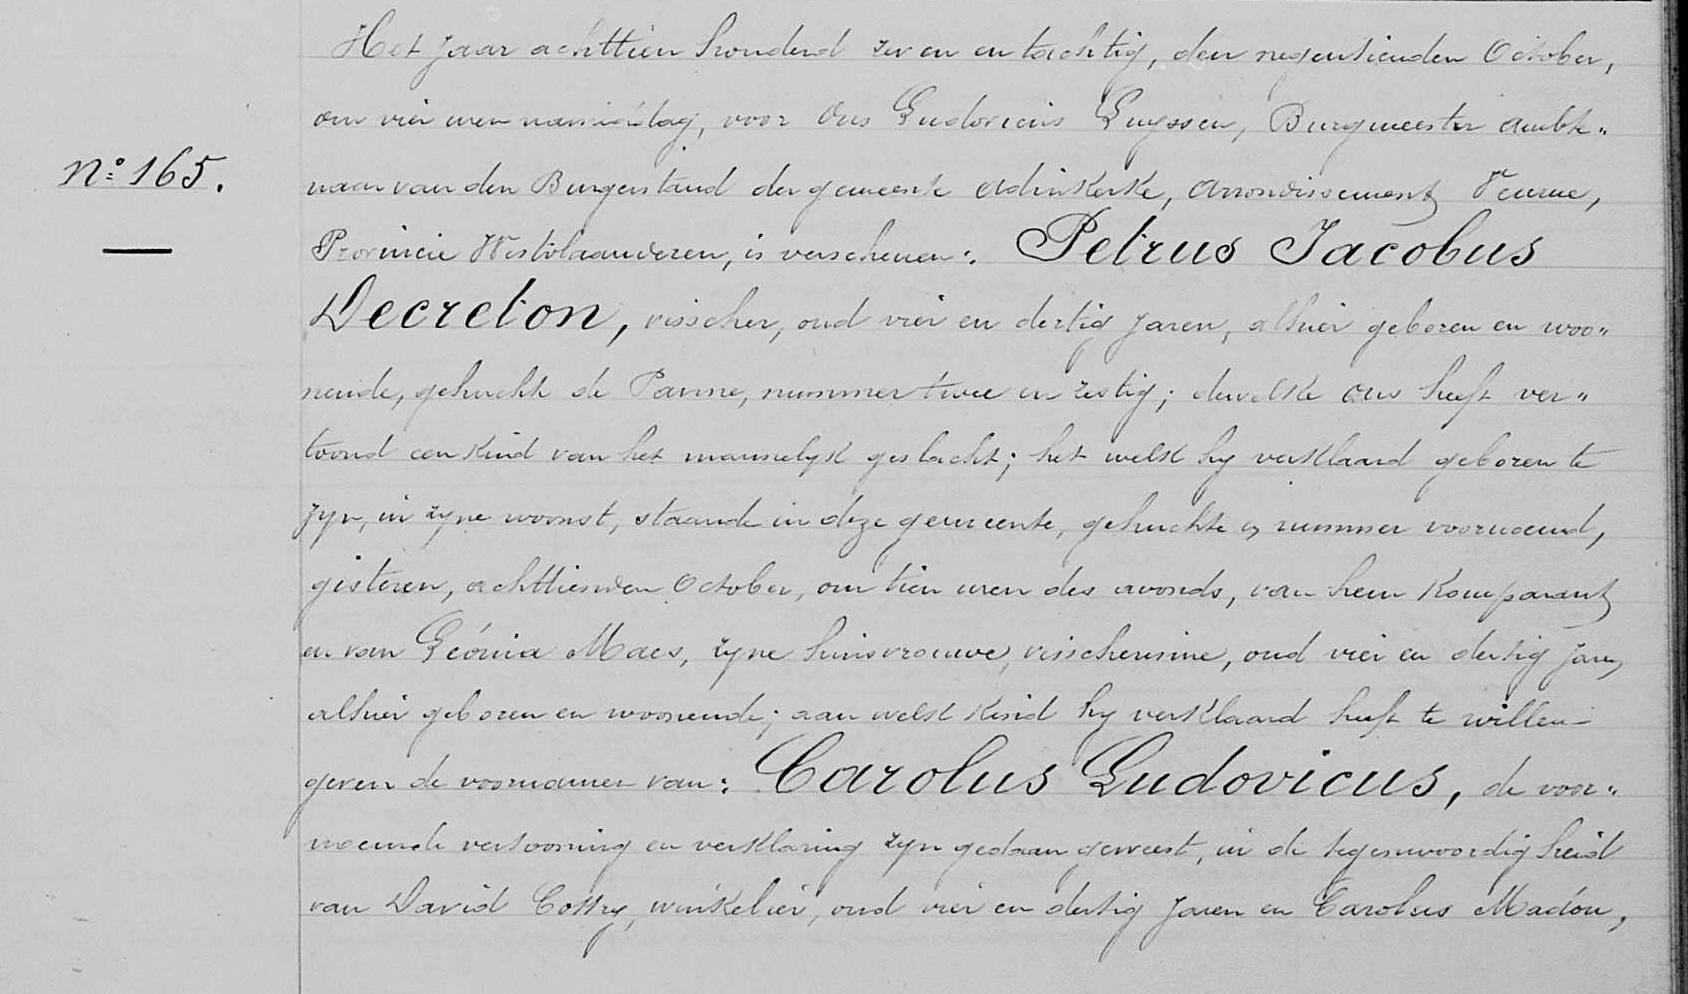 Het jaar achttien honderd zeven en tachtig, den negentienden October,
om vier uren namiddag, voor Ons Ludovicus Luyssen, Burgmeester Ambte„
N.º 165.
naar van den Burgerstand der gemeente Adinkerke, Arrondissement Veurne,
Provincie Westvlaanderen, is verschenen: Petrus Jacobus
Decreton, visscher, oud vier en dertig jaren, alhier geboren en woo„
nende, gehucht de Panne, nummer twee en zestig; dewelke ons heeft ver„
toond een kind van het mannelyk geslacht; het welk hy verklaard geboren te
zyn, in zyne woonst, staande in deze gemeente, gehuchte en nummer voornoemd,
gisteren, achttienden October, om tien uren des avonds, van hem Komparant
en van Léónia Maes, zyne huisvrouwe, visscherinne, oud vier en dertig jaren,
alhier geboren en woonende; aan welk kind hy verklaard heeft te willen
geven de voornamen van: Carolus Ludovicus, de voor„
noemde vertooning en verklaring zyn gedaan geweest, in de tegenwoordigheid
van David Cottry, winkelier, oud vier en dertig jaren en Carolus Madou,